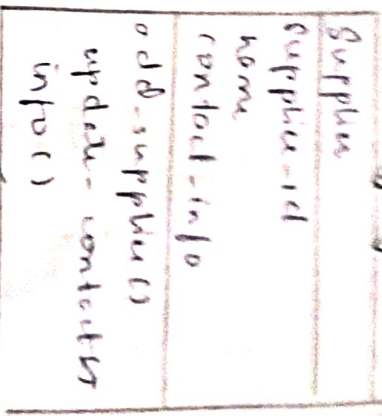 Supplier
supplier-id
name
contact-info
add-supplier()
update-contact
info()